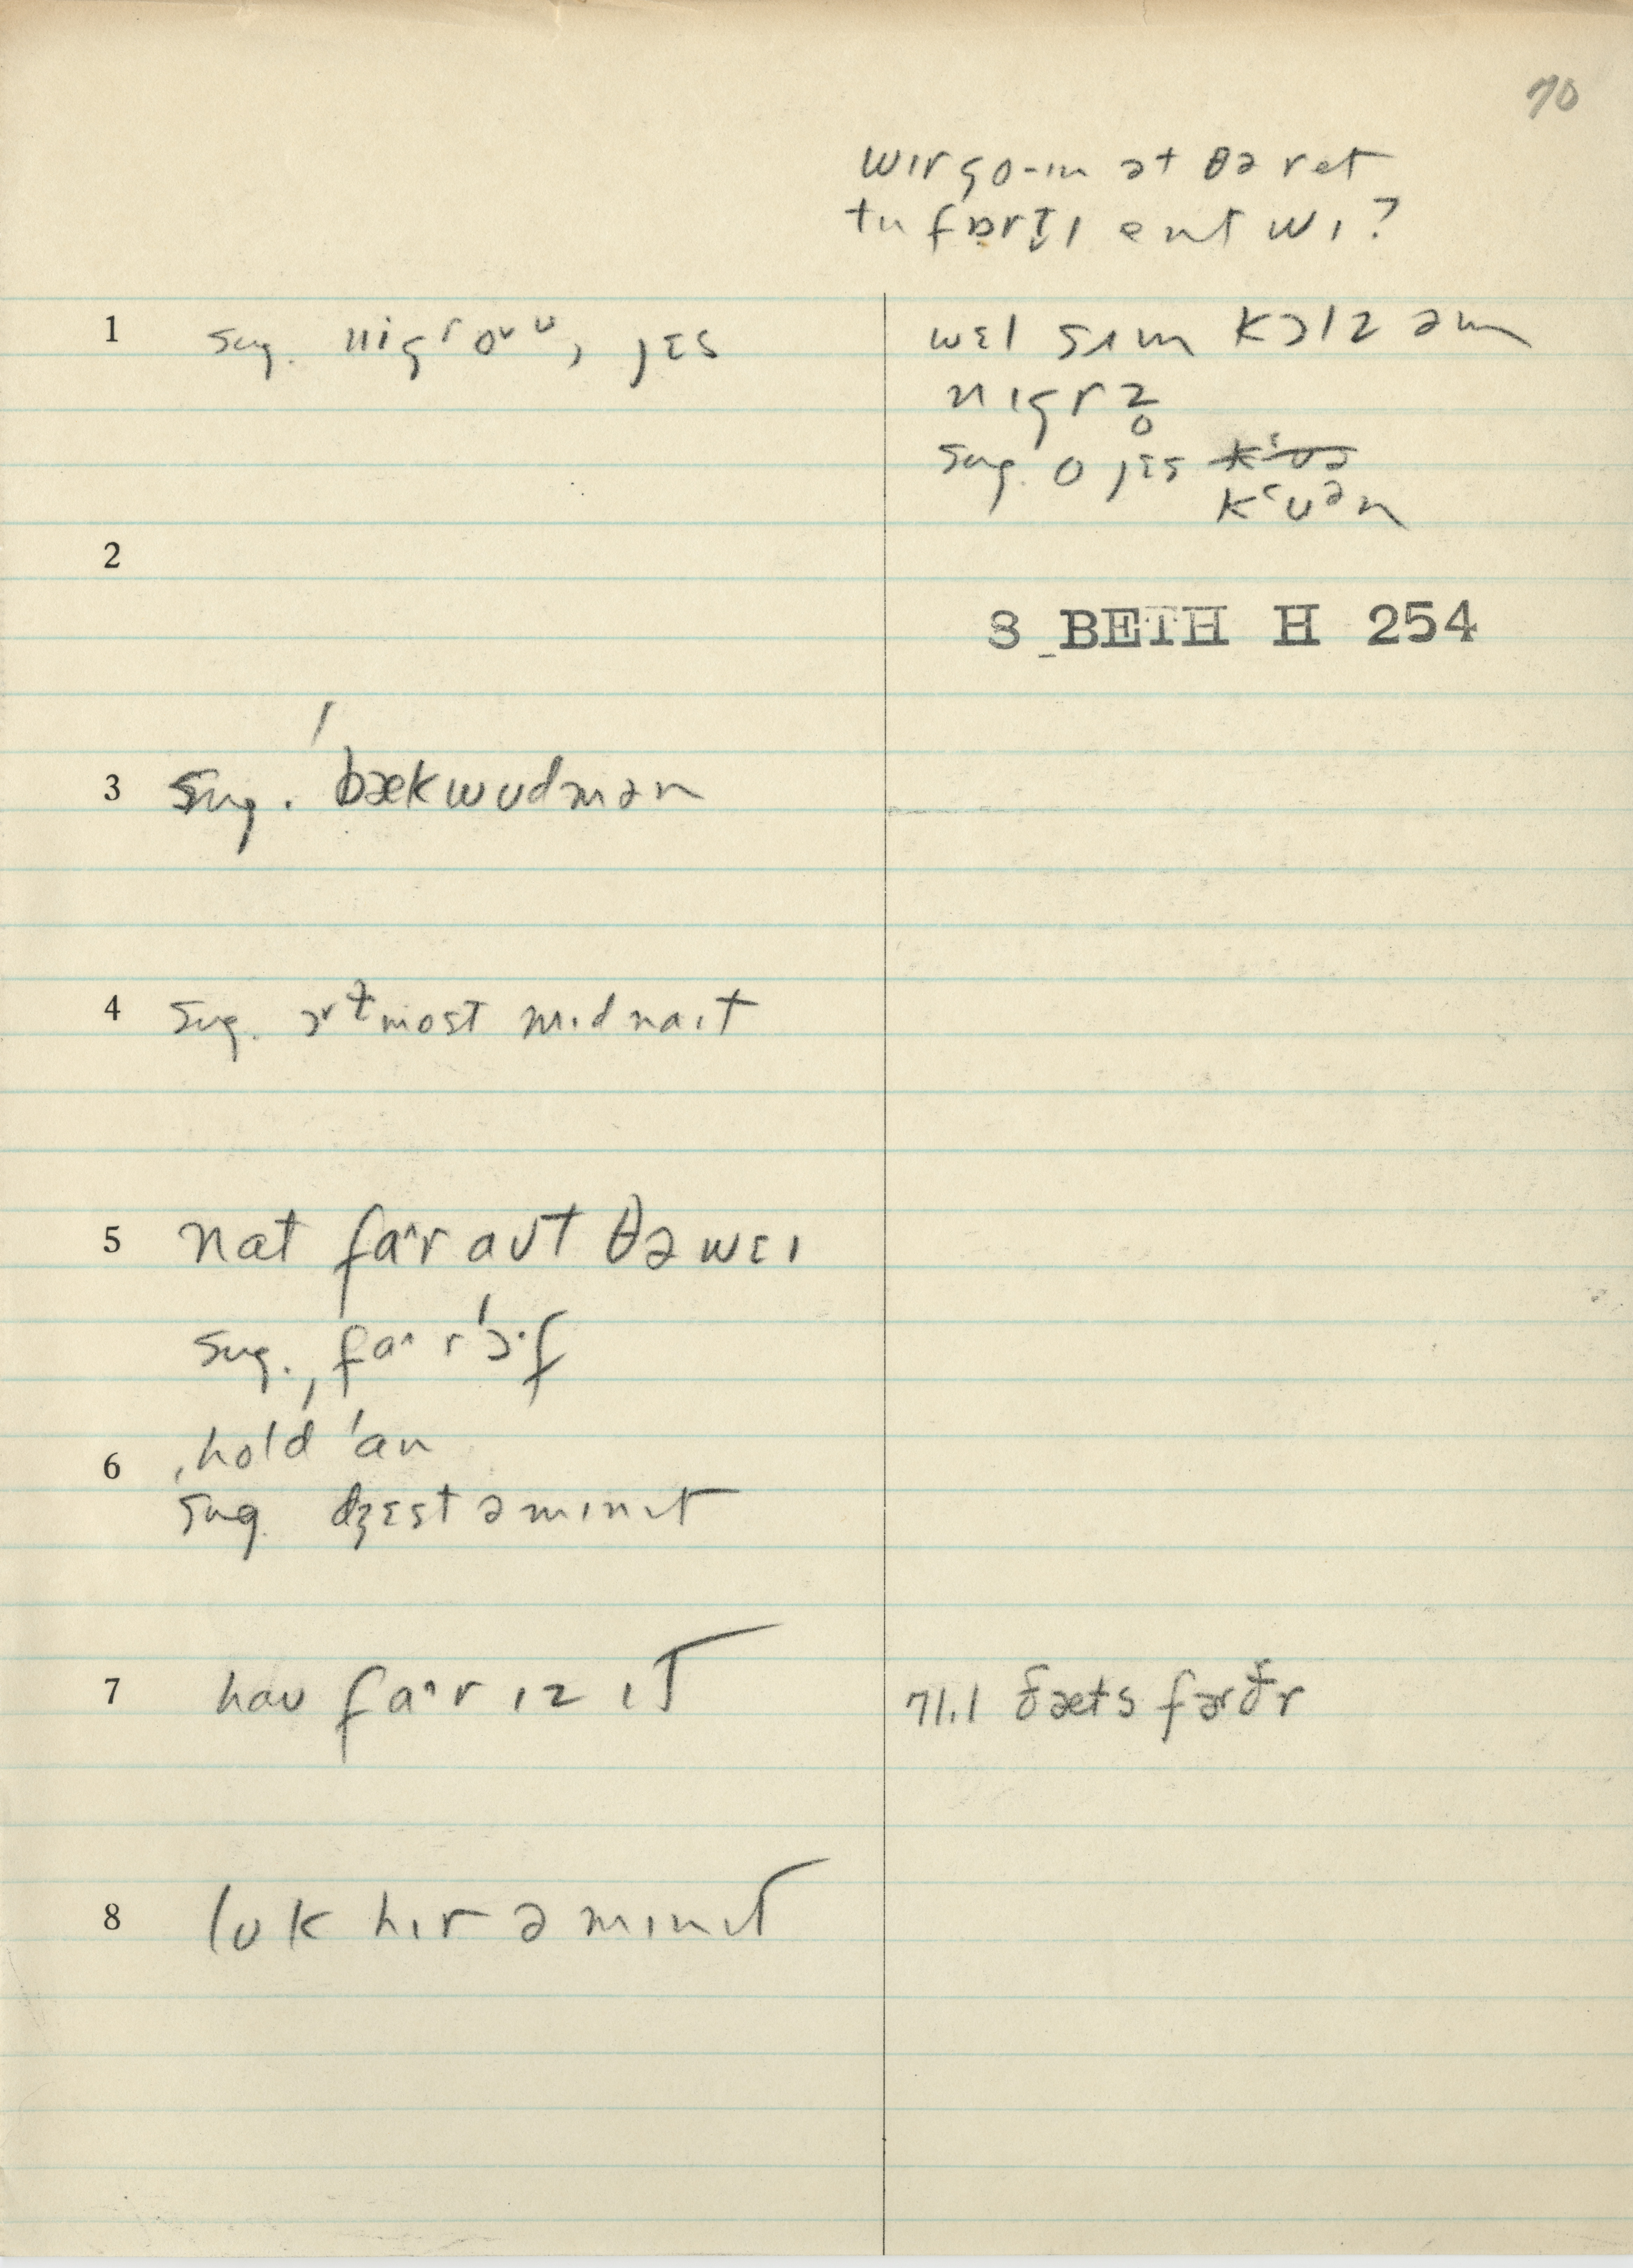 70
wɪr go-ɪn ət θə ret
tu fɒrt̬ɪ ent wɪ?
1 sug. nigroᵛᵘ, jɛs
wɛl sʌm kɔlz əm
nɪgrəz
sug. o jɛs
kʿuᵊn
2
S BETH H 254
3 sug. ˈbækwudmən
4 sug. ɔˠɫmost mɪdnaɪt
5 nat fa^r aut θə wɛɪ
sug. ˌfa^rˈɔ·f
6 ˌhold ˈan
sug. dʒɛst ə mɪnɪt
7 hau fa^r ɪz ɪt
71.1 ðæts fərðr
8 luk hɪr ə mɪnɪt